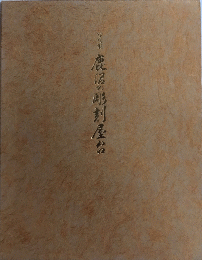 鹿沼の彫刻屋台